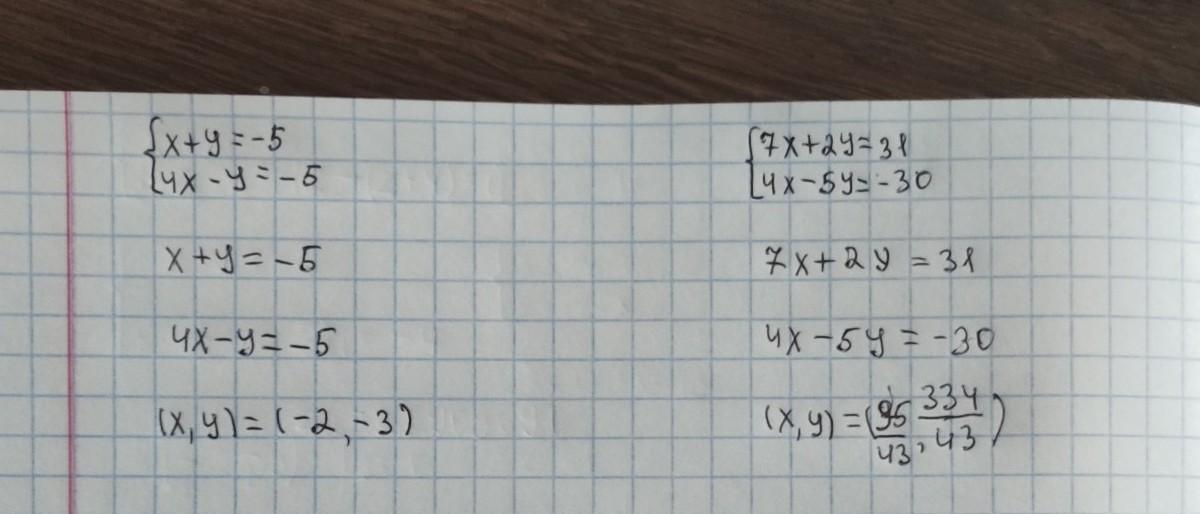 {x+y=-5
4x-y=-5
x+y=-5
4x-y=-5
(x,y)=(-2,-3)
{7x+2y=31
4x-5y=-30
7x+2y=31
4x-5y=-30
(x,y)=(95/43, 334/43)